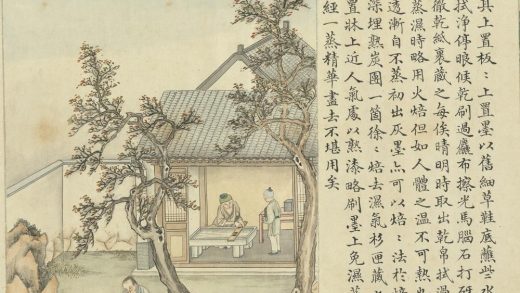 具上置板〻上置墨以舊細草鞋底蘸些水
拭淨停眼候乾刷過麤布擦光馬腦石打研
徹乾紙裹藏之每俟晴明時取出乾帛拭過
蒸濕時略用火焙但如人體之溫不可熱也
透漸自不蒸初出灰墨亦可以焙〻法於
深埋熟炭團一箇徐〻焙去濕氣杉匣藏
置牀上近人氣處以熟漆略刷墨上免濕
經一蒸精華盡去不堪用矣